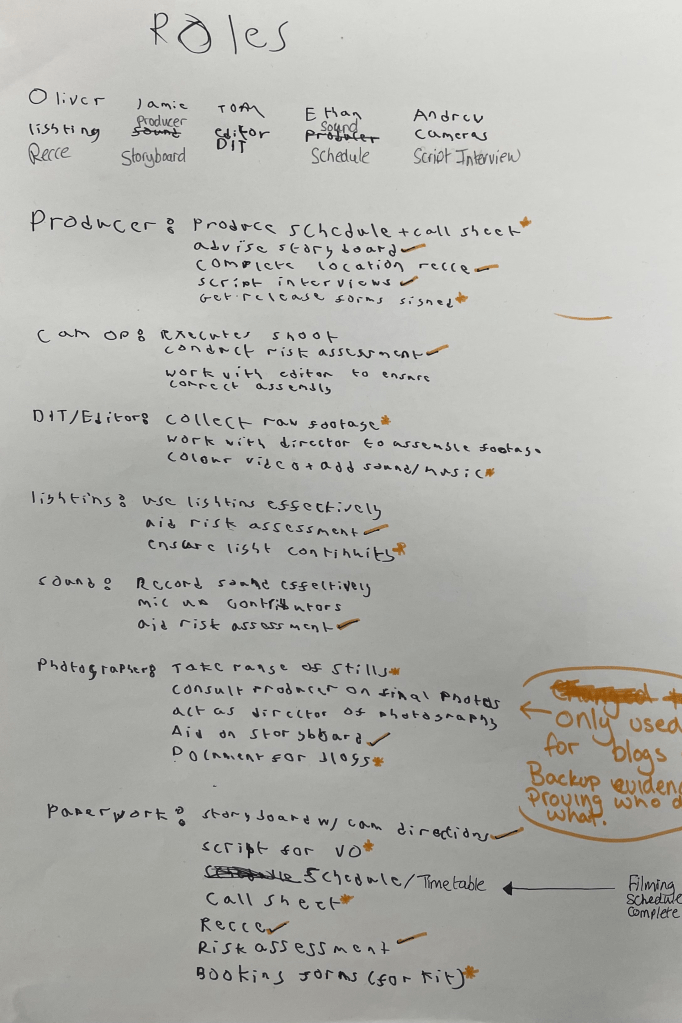 Roles
Oliver Jamie Tom Ethan Andrew
Producer Sound
lighting sound editor producer cameras
Recce Storyboard DIT Schedule Script Interview
Producer: Produce schedule + call sheet*
advise storyboard
complete location recce
script interviews
Get release forms signed*
Cam op: executes shoot
conduct risk assessment
work with editor to ensure
correct assembly
DIT/Editor: collect raw footage*
work with director to assemble footage
colour video + add sound/music*
lighting: use lighting effectively
aid risk assessment
ensure light continuity*
sound: Record sound effectively
mic up contributors
aid risk assessment
Photographer: Take range of stills*
consult producer on final photos
act as director of photography
Aid on storyboard
Document for blogs*
Changed
← only used
for blogs
Backup eviden
Proving who d
what.
Paperwork: storyboard w/ cam directions
script for VO*
Schedule/Timetable
← Filming
Schedule
Complete
Call sheet*
Recce
Risk assessment
Booking forms (for kit)*